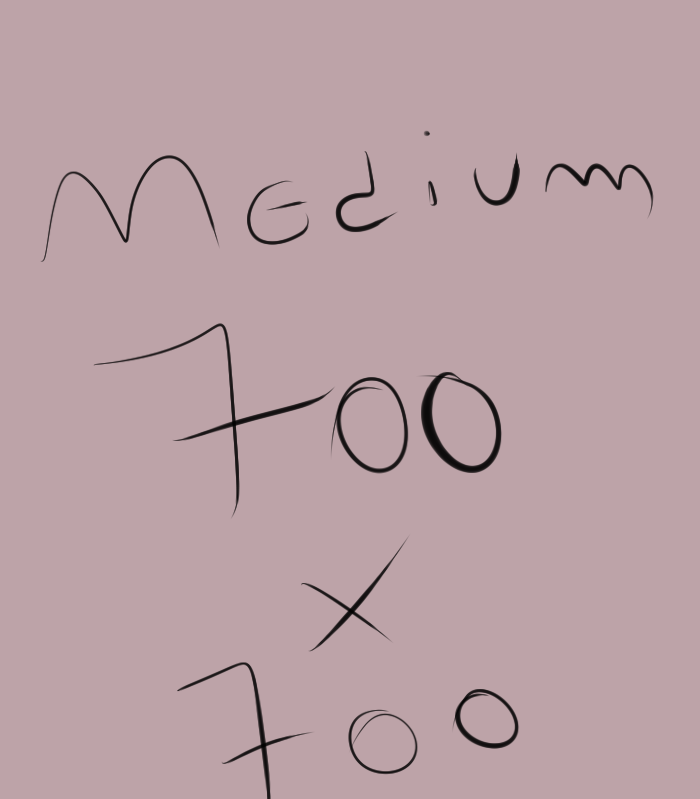 Medium
700
x
700